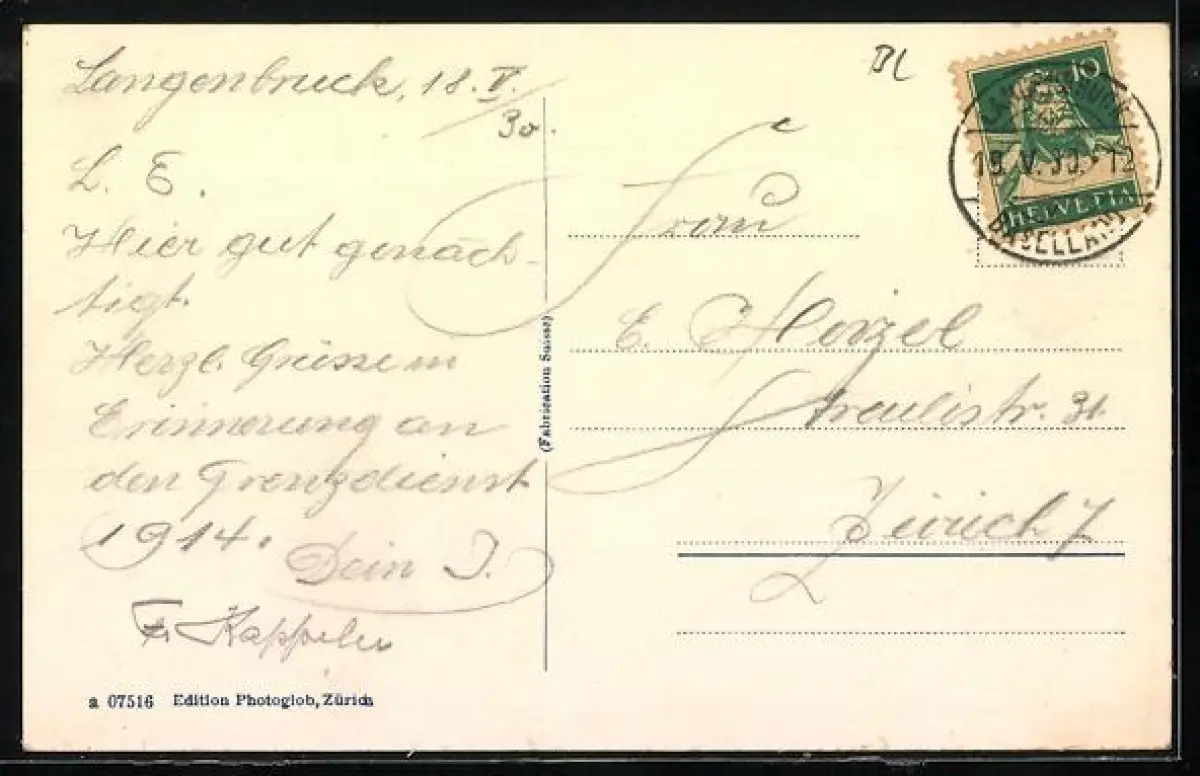 Langenbruck, 18. V.
30.
L. E.
Hier gut genäch-
tigt.
Herzl. Grüsse in
Erinnerung an
den Grenzdienst
1914.
Dein J.
Fr. Kappeler
a 07516 Edition Photoglob, Zürich
(Fabrication Suisse)
BL
10
HELVETIA
19. V. 30. - 12
BASELLAND
E.
31.
Zürich 7